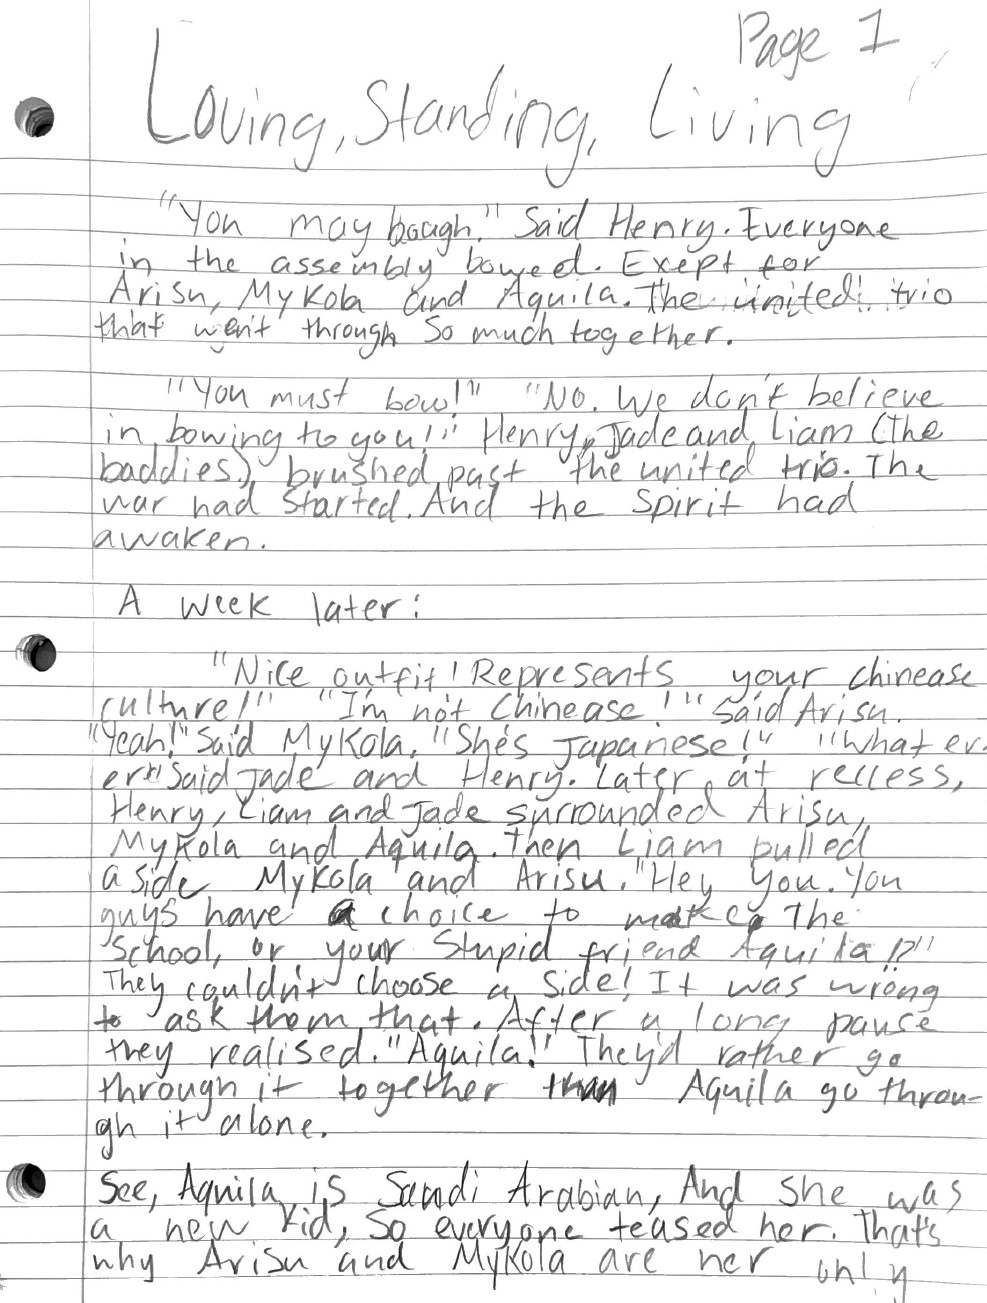 Page 1
Loving, Standing, Living
"You may baugh." Said Henry. Everyone
in the assembly bowed. Exept for
Arisu, Mykola and Aquila. The united trio
that went through So much together.
"You must bow!" "No. We don't believe
in bowing to you!" Henry, Jade and Liam (the
baddies.) brushed past the united trio. The
war had Started. And the Spirit had
awaken.
A week later:
"Nice outfit! Represents your chinease
culture!" "I'm not Chinease!" Said Arisu.
"Yeah!" Said Mykola. "She's Japanese!" "What ev-
er" Said Jade and Henry. Later at relless,
Henry, Liam and Jade surrounded Arisu,
Mykola and Aquila. Then Liam pulled
a side Mykola and Arisu. "Hey you. You
guys have a choice to make. The
School, or your Stupid friend Aquila!?"
They couldn't choose a Side! It was wrong
to ask them that. After a long pause
they realised. "Aquila!" They'd rather go
through it together than Aquila go throu-
gh it alone.
See, Aquila is Saudi Arabian, And she was
a new kid, So everyone teased her. That's
why Arisu and Mykola are her only